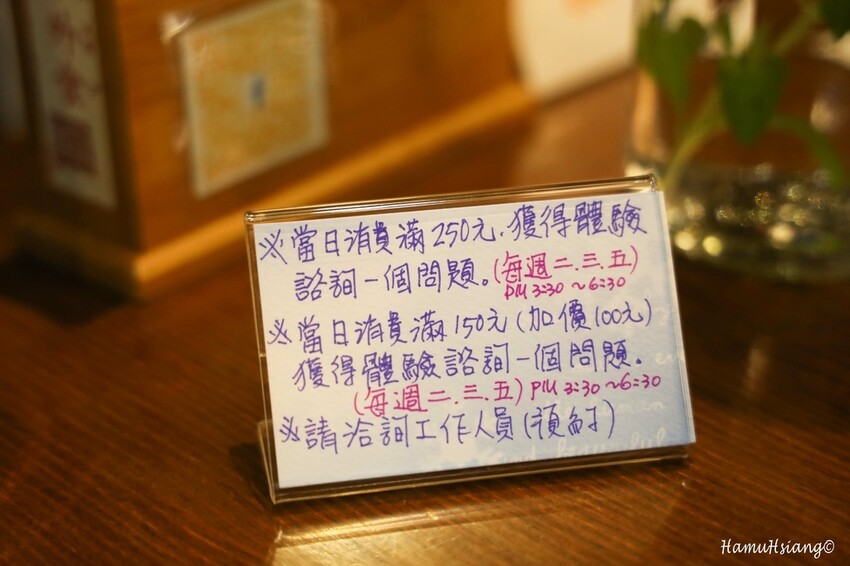 ※當日消費滿250元.獲得體驗
諮詢一個問題。(每週二.三.五)
PM 3:30 ~6:30
※當日消費滿150元(加價100元)
獲得體驗諮詢一個問題。
(每週二.三.五) PM 3:30 ~6:30
※請洽詢工作人員(預約)
HamuHsiang©